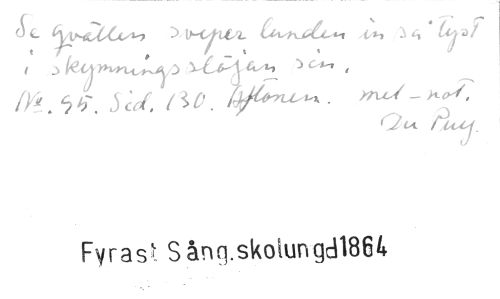 Se qvällen sveper lunden in så tyst
i skymningsslöjan sin.
No. 95. Sid. 130. Aftonen. mel-not.
Du Puy.
Fyrast Sång.skolungd1864